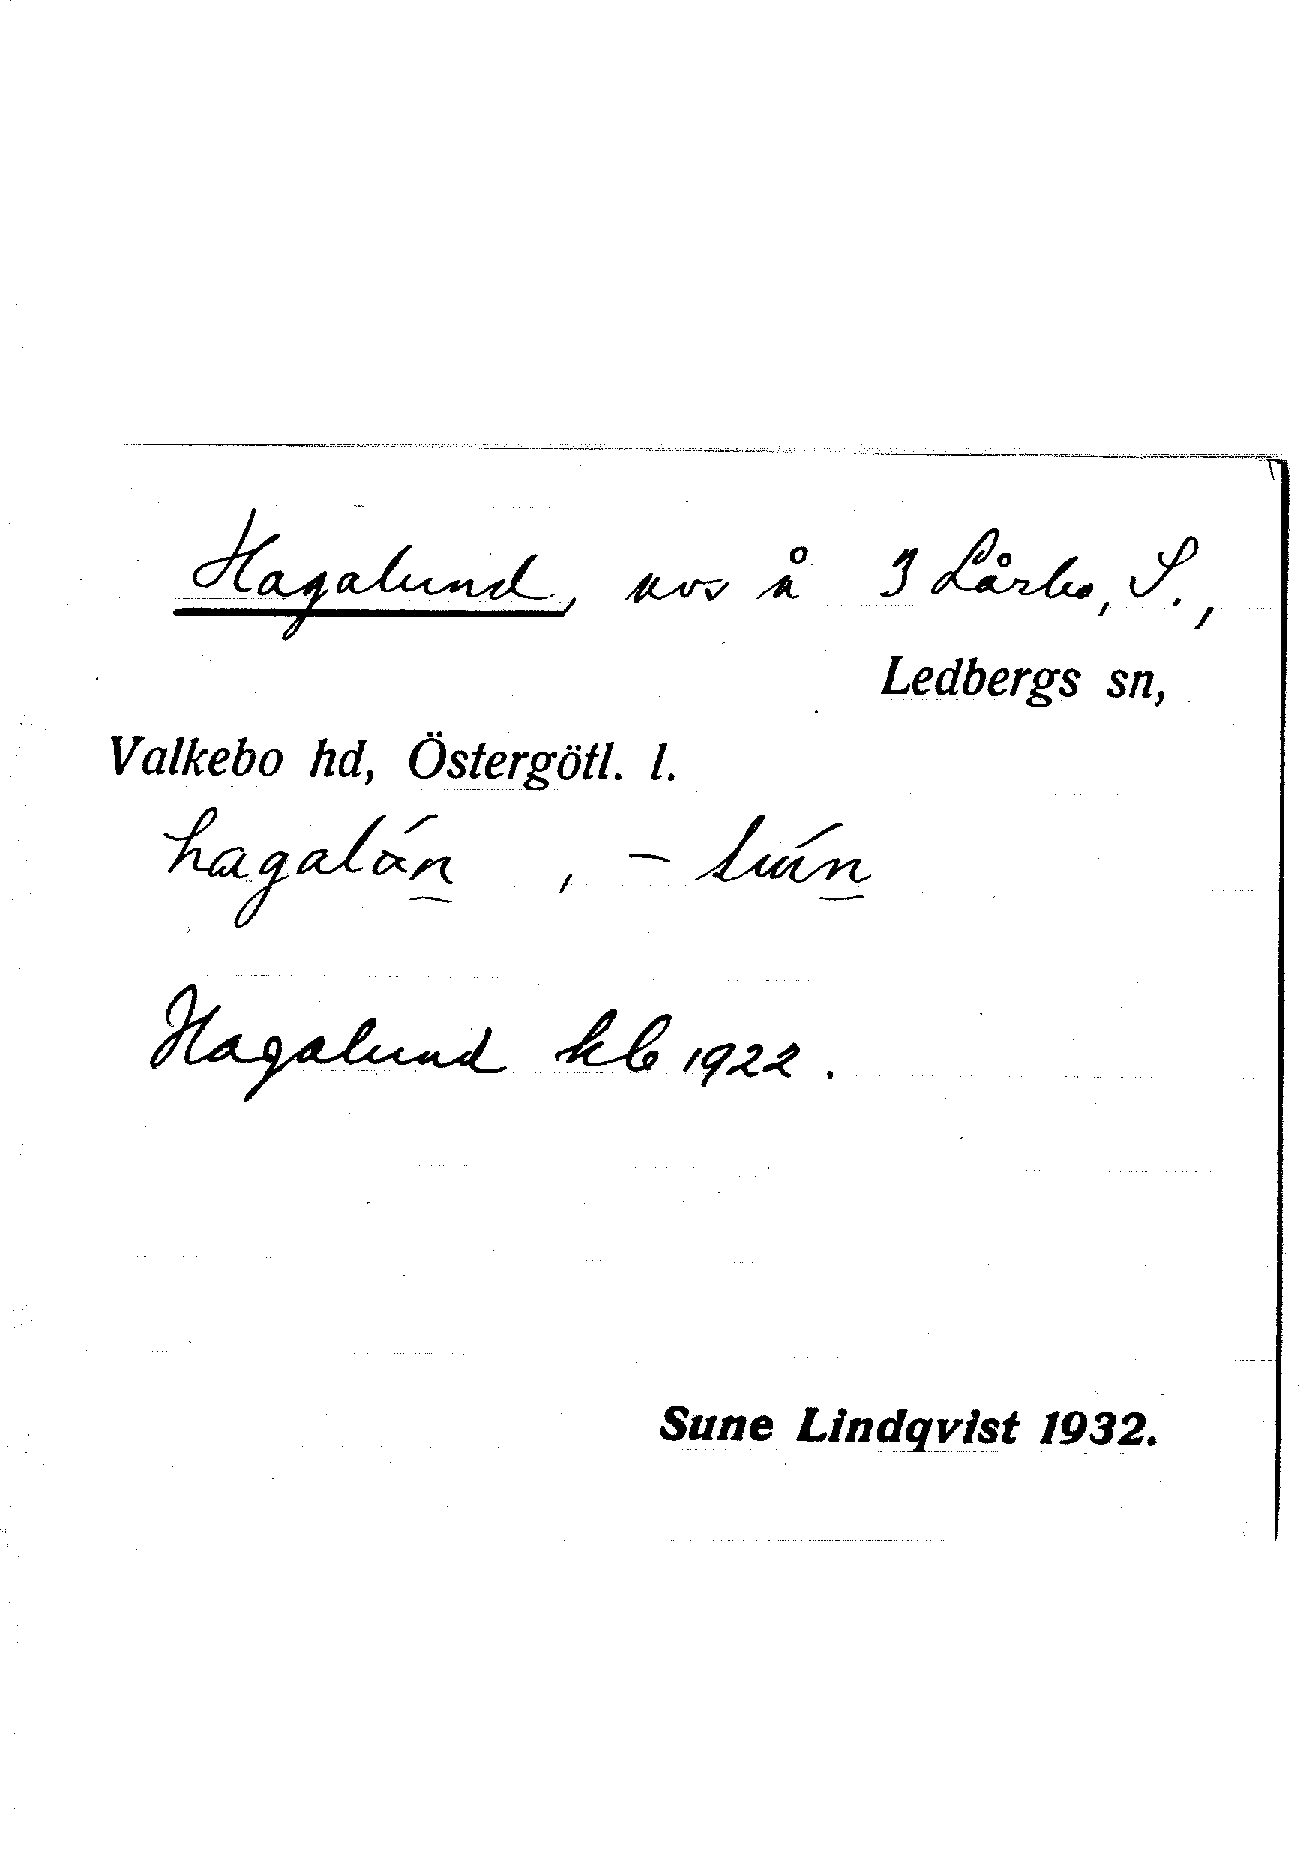 Hagalund, avs å 3 Lårbo, S.,
Ledbergs sn,
Valkebo hd, Östergötl. l.
hagalán, -lún
Hagalund kb 1922.
Sune Lindqvist 1932.